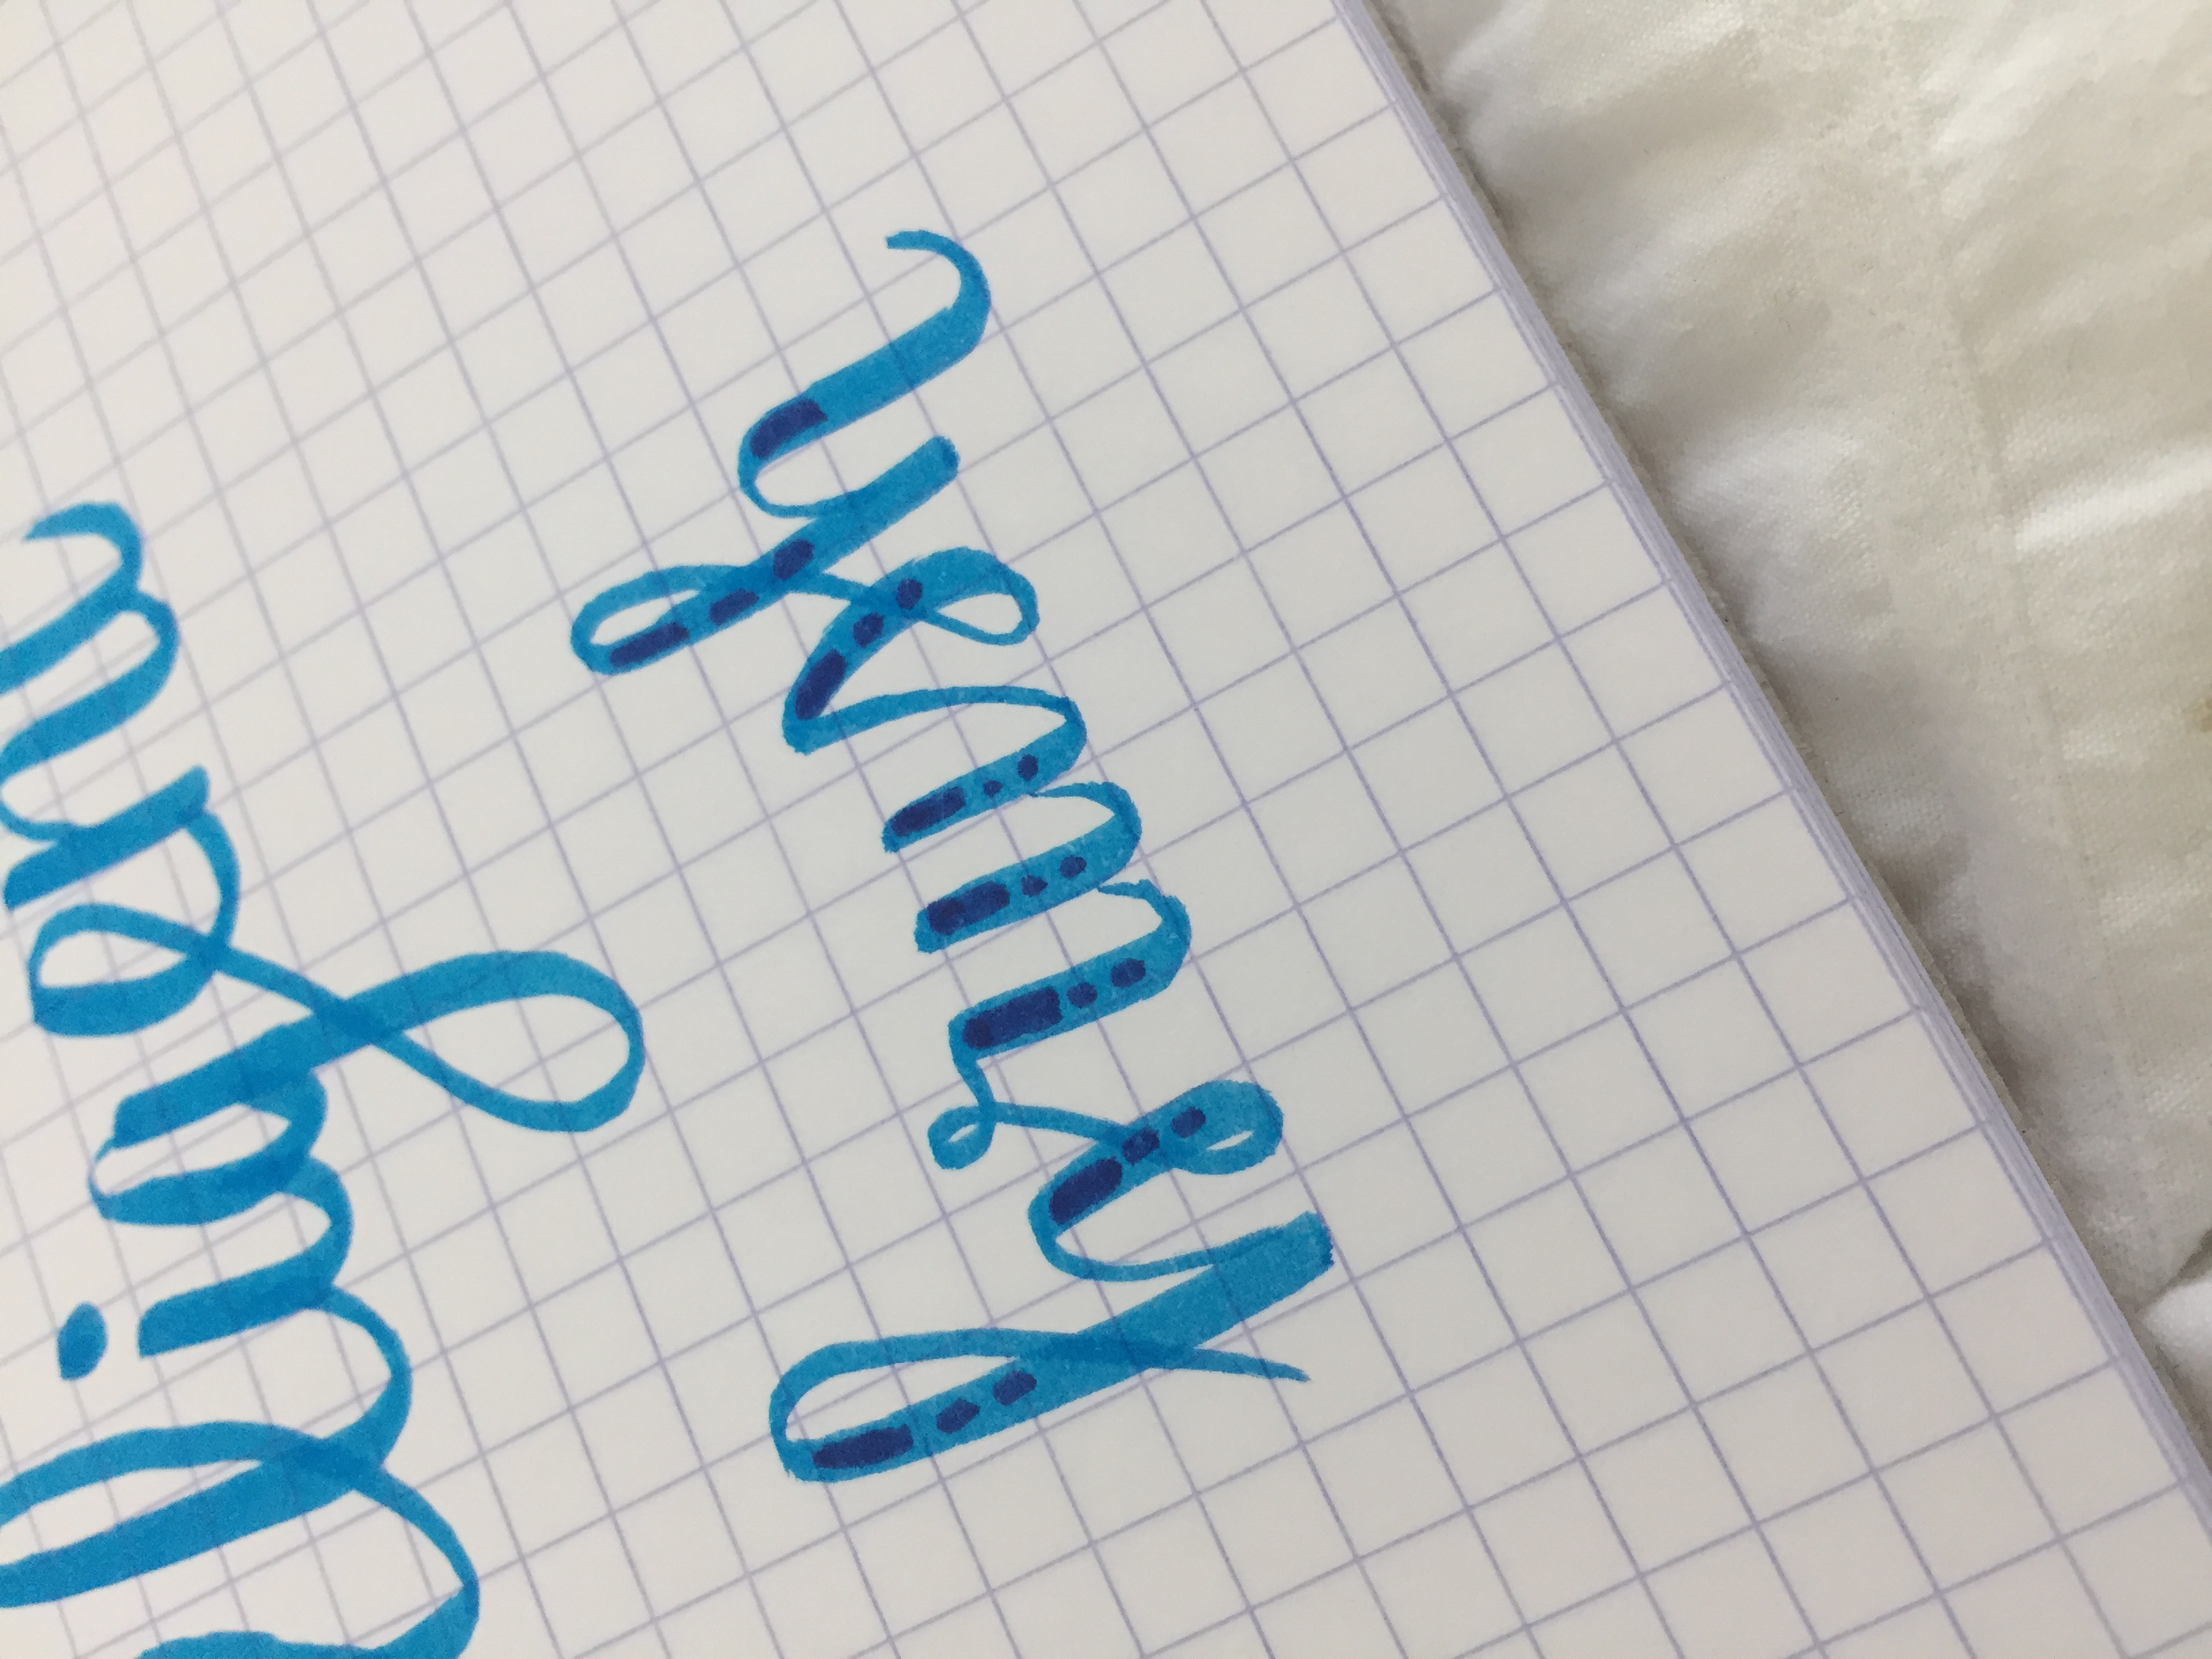 ligent
brush